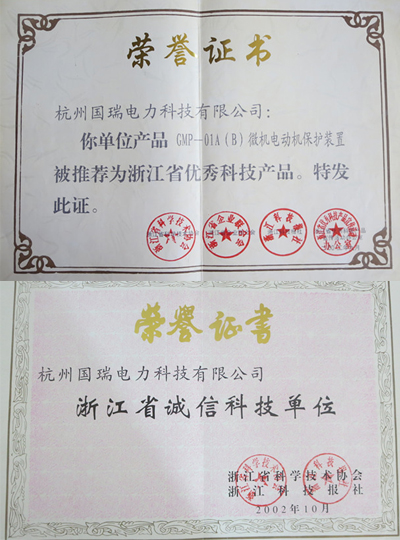 荣誉证书
杭州国瑞电力科技有限公司：
你单位产品 GMP--01A(B)微机电动机保护装置
被推荐为浙江省优秀科技产品。特发
此证。
浙江省科学技术协会
浙江省企业联合会
浙江科技报社
荣誉证書
杭州国瑞电力科技有限公司
浙江省诚信科技单位
浙江省科学技术协会
浙江科技报社
2002年10月